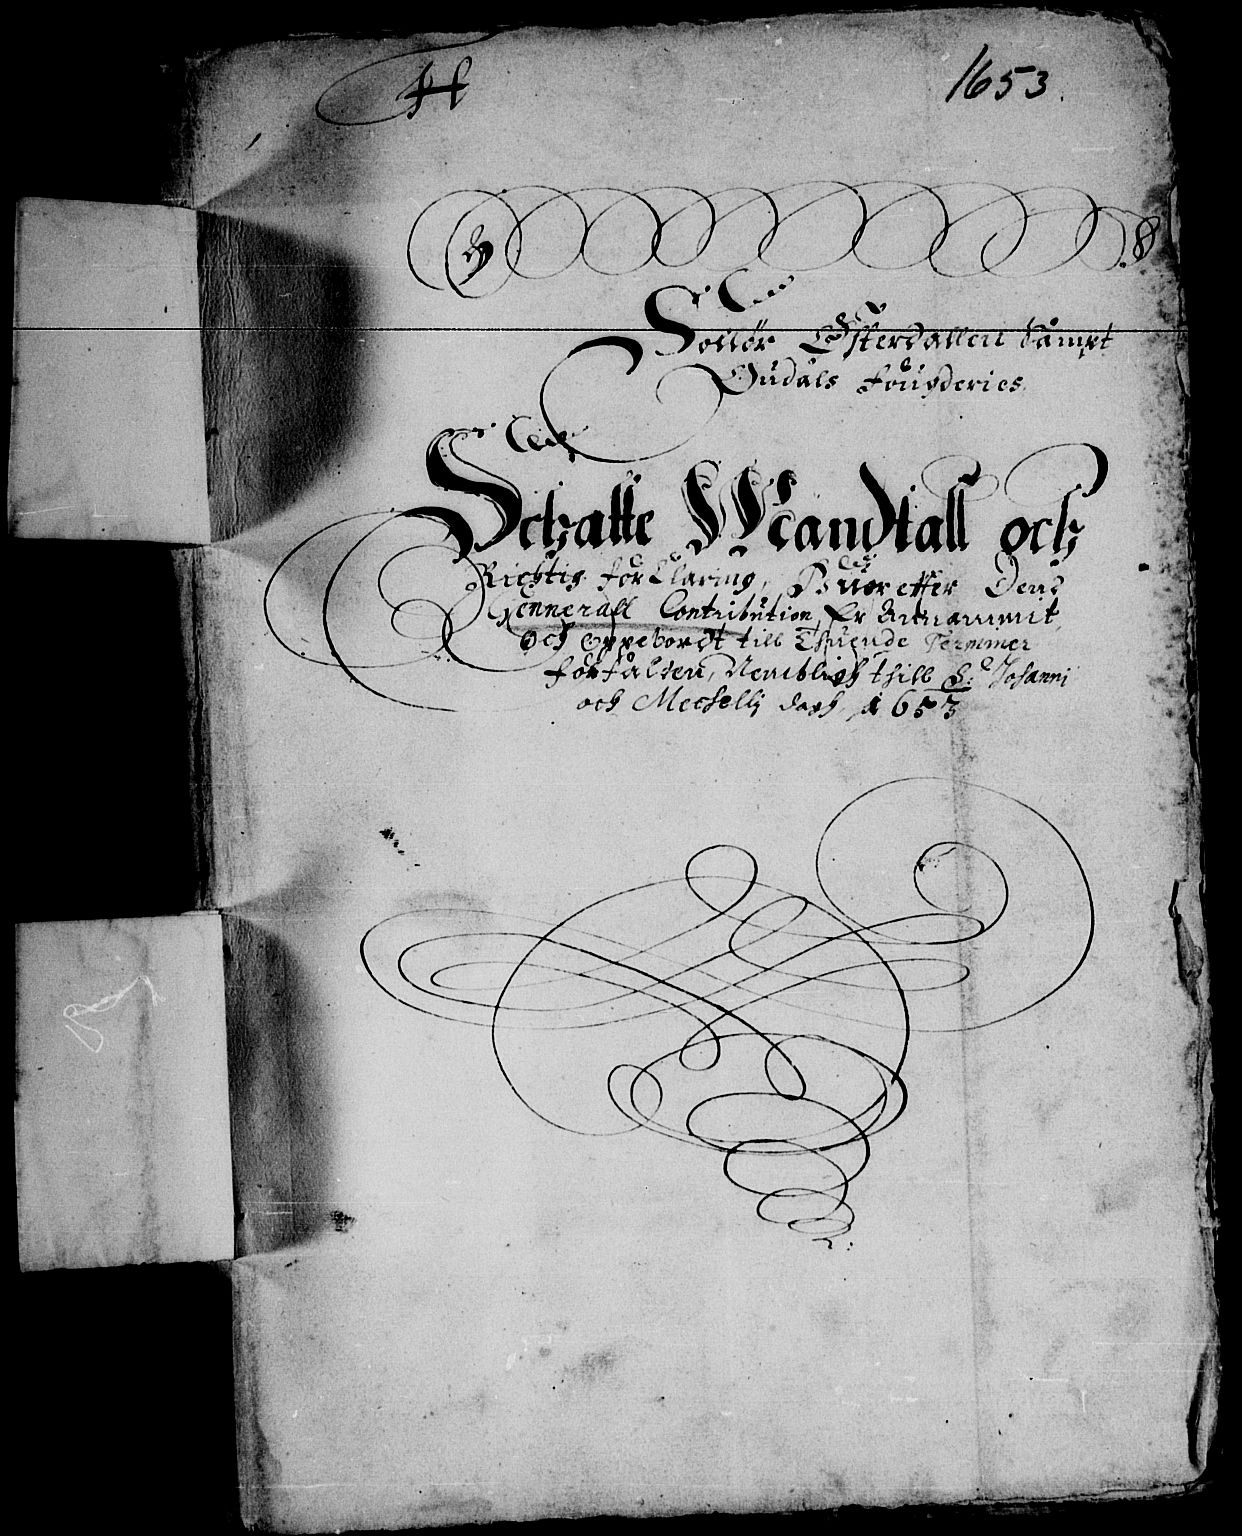 H
1653
Soelør Østerdallen sampt
Oudals fougderies
Schatte Mandtall och
Richtig forklaring, Huoreffter Dend
Gennerall Contribution, Er Annammit,
och oppebordt till Thuende Termmer
forfalden, Nembligh thill S: Johanni
och Mechelly dagh 1653